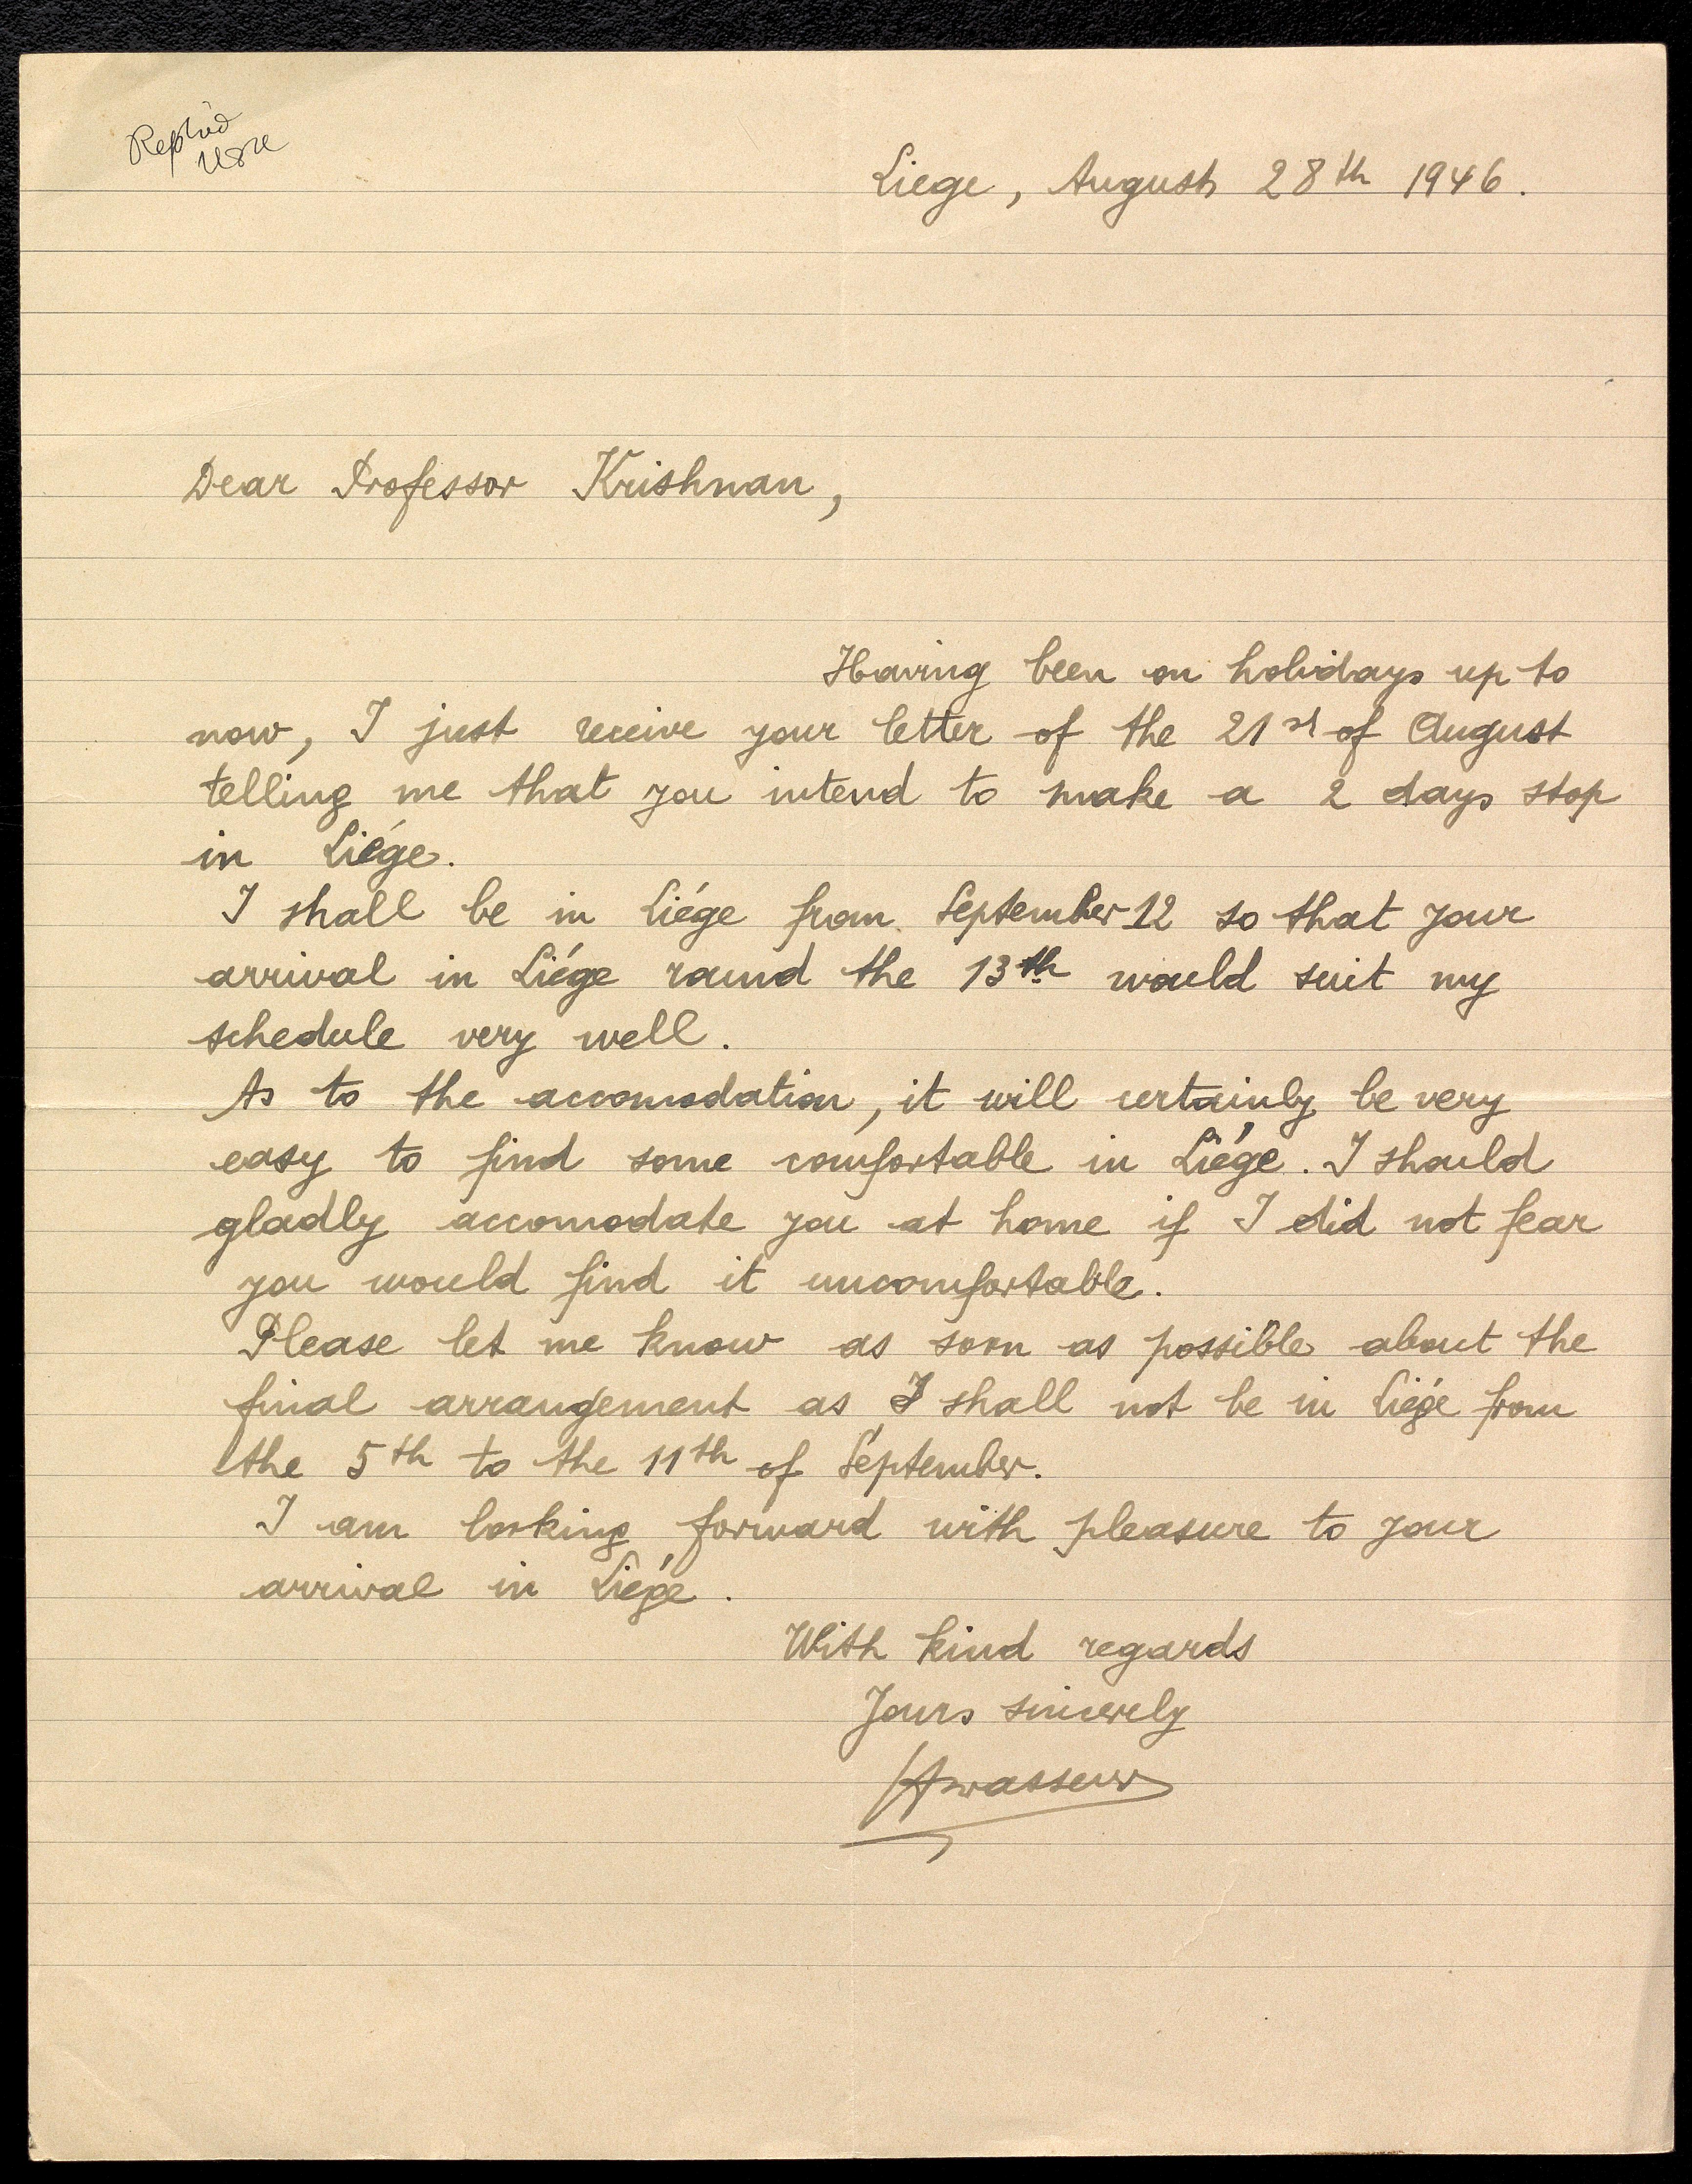 Replied
Liege, August 28th 1946.
Dear Professor Krishnan,
Having been on holidays up to
now, I just receive your letter of the 21st of August
telling me that you intend to make a 2 days stop
in Liége.
I shall be in Liége from September 12 so that your
arrival in Liége round the 13th would suit my
schedule very well.
As to the accomodation, it will certainly be very
easy to find some comfortable in Liége. I should
gladly accomodate you at home if I did not fear
you would find it uncomfortable.
Please let me know as soon as possible about the
final arrangement as I shall not be in Liége from
the 5th to the 11th of September.
I am looking forward with pleasure to your
arrival in Liége.
With kind regards
Yours sincerely